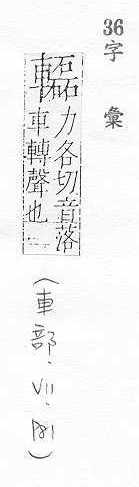 36 字彙
力各切音落
車轉聲也
(車部·VII·)